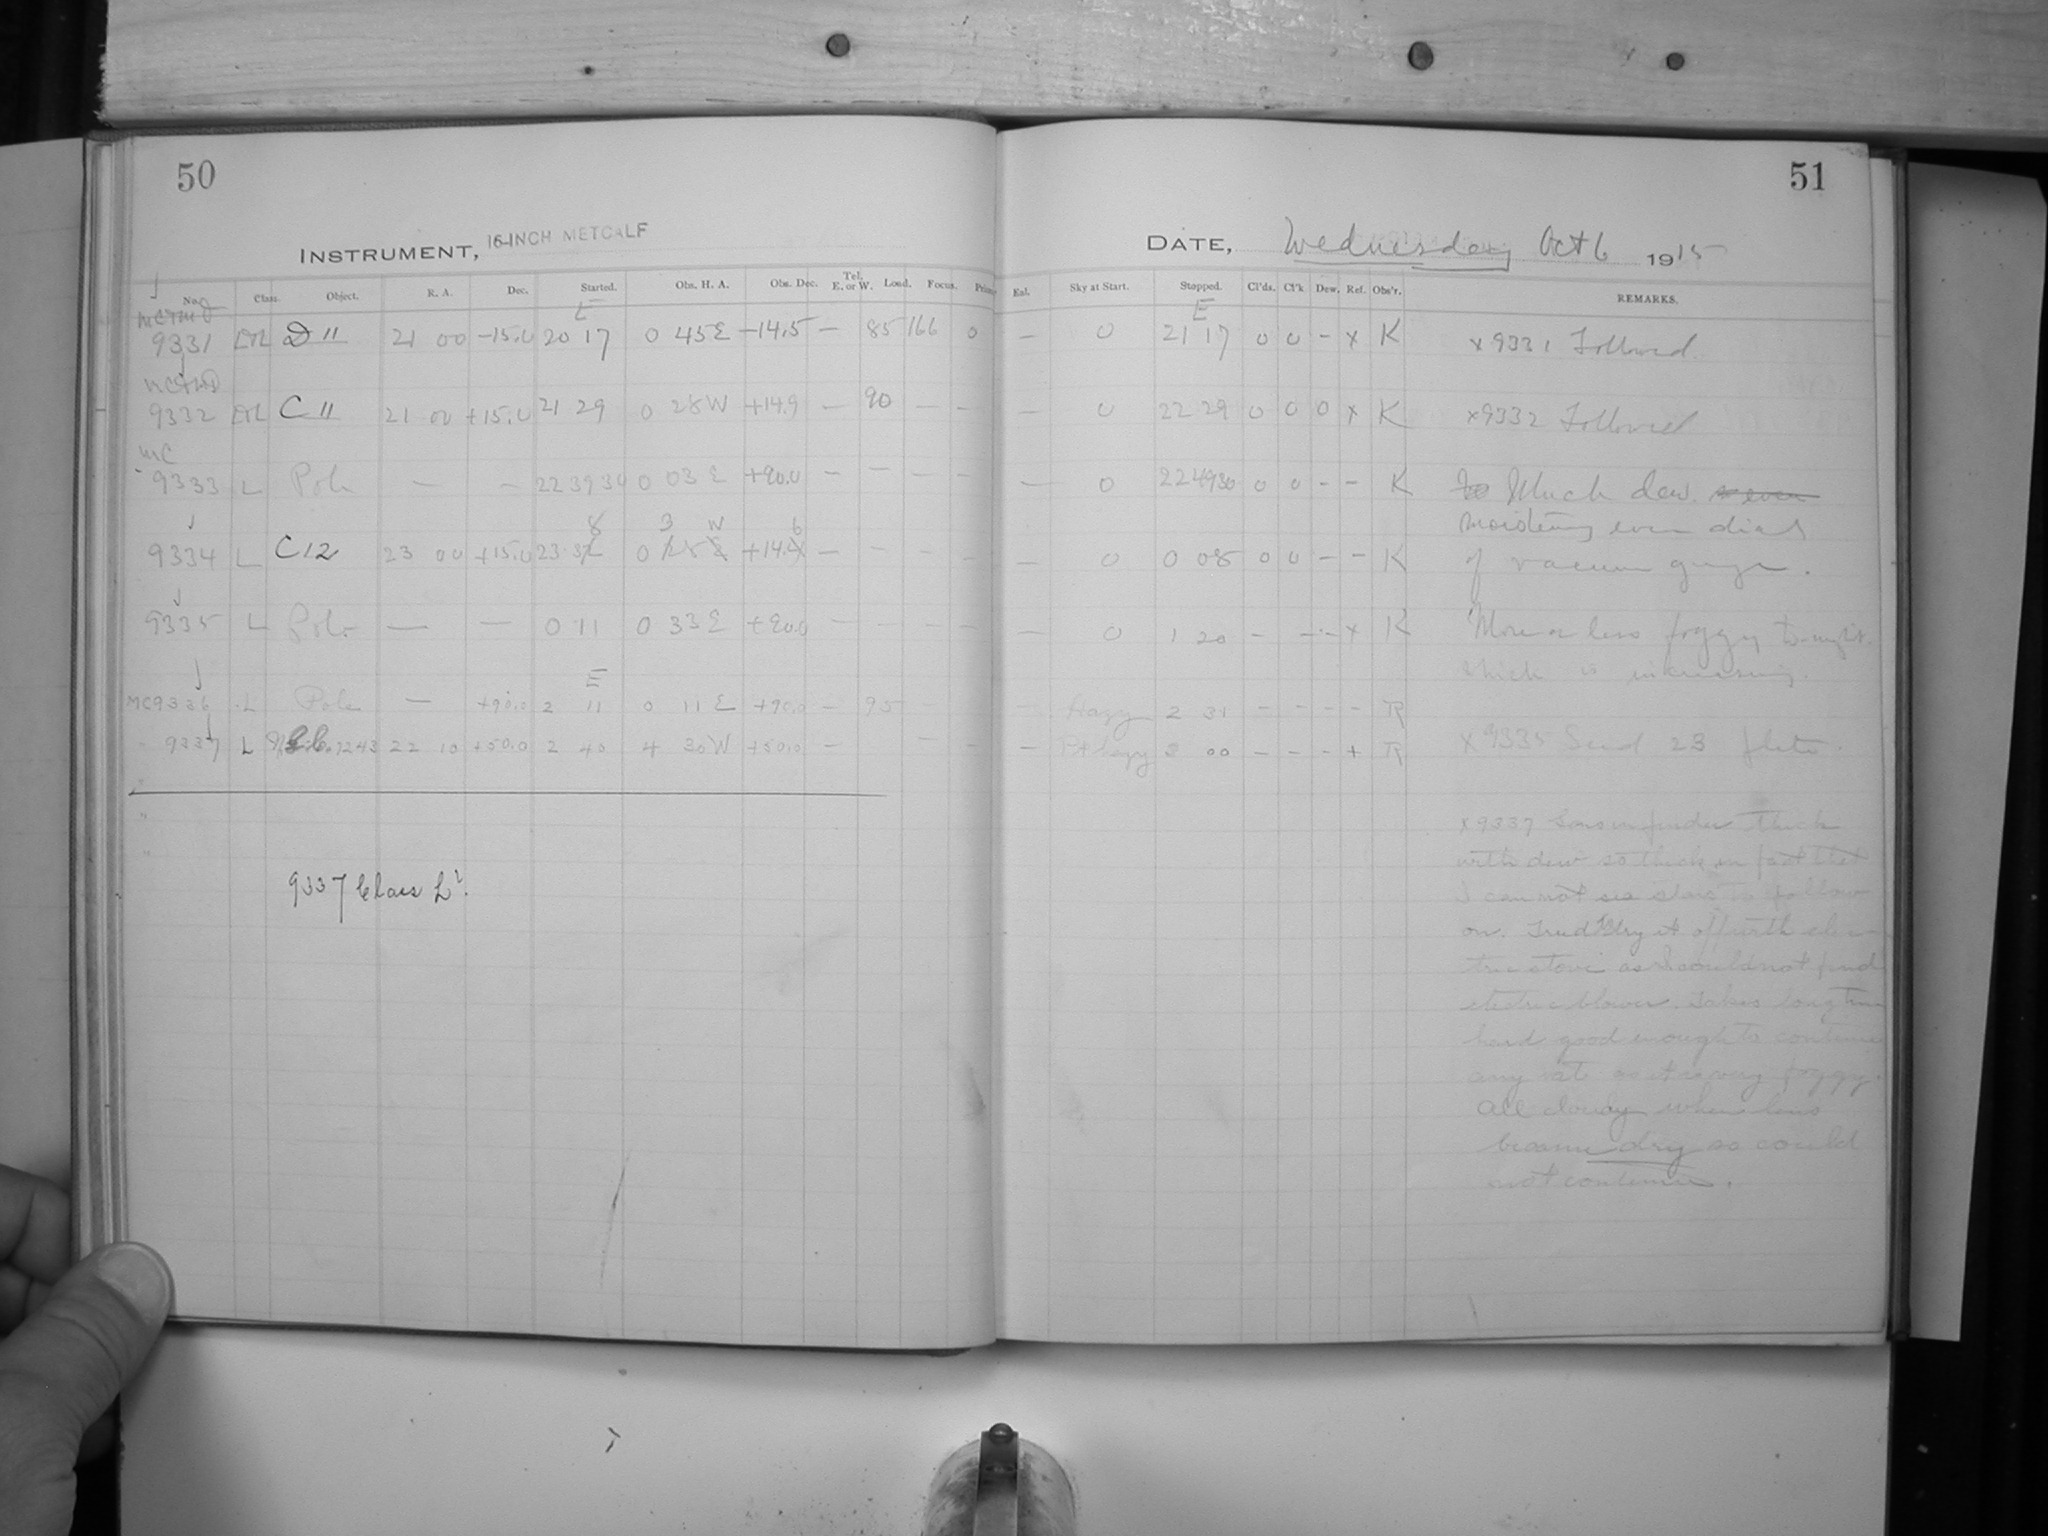 50
INSTRUMENT, 16-INCH METCALF
No. Class. Object. R. A. Dec. Started. Obs. H. A. Obs. Dec. Tel. E. or W. Load. Focus. Prism
E
9331 D 11 21 00 -15.0 20 17 0 45 E -14.5 — 85 166 0
9332 C 11 21 00 +15.0 21 29 0 28 W +14.9 — 90 — —
MC
9333 L Pole — — 22 39 30 0 03 E +90.0 — — — —
8 3 W 6
9334 L C 12 23 00 +15.0 23 3 0 +14. — — — —
9335 L Pole — — 0 11 0 33 E +90.0 — — — —
E
MC9336 L Pole — +90.0 2 11 0 11 E +90.0 — 95 —
9337 L 7243 22 10 +50.0 2 40 4 30 W +50.0 — — —
9337 Class L
51
DATE, Wednesday Oct 6 1915
Enl. Sky at Start. Stopped. Cl'ds. Cl'k Dew. Ref. Obs'r. REMARKS.
E
— 0 21 17 0 0 - x K x 9331 Followed
— 0 22 29 0 0 0 x K x9332 Followed
— 0 22 49 30 0 0 - - K Much dew
moistening even dials
— 0 0 08 0 0 - - K of vacuum gauge.
— 0 1 20 - - - x K More or less foggy tonight.
thick is increasing.
— Hazy 2 31 - - - - R
— Pt hazy 3 00 - - - + R x 9335 Seed 23 plate.
x 9337 Lens in finder thick
with dew so thick in fact that
I can not see stars to follow
on. Tried to dry it off with elec-
tric stove as I could not find
electric blower. Takes long time
hard good enough to continue
any rate as it is very foggy.
All cloudy when lens
became dry so could
not continue.